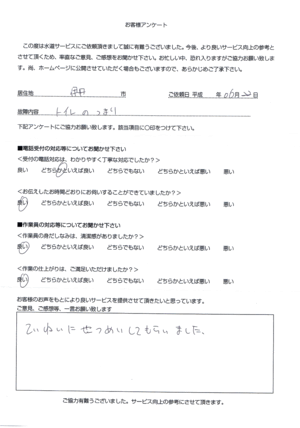 お客様アンケート
この度は水道サービスにご依頼頂きまして誠に有難うございました。今後、より良いサービス向上の参考と
させて頂くため、率直なご意見、ご感想をお聞かせ下さい。お忙しい中、恐れ入りますがご協力お願いしま
す。尚、ホームページに公開させていただく場合もございますので、あらかじめご了承下さい。
居住地 市 ご依頼日 平成 年 06月22日
故障内容 トイレのつまり
下記アンケートにご協力お願い致します。該当項目に○印をつけて下さい。
■電話受付の対応等についてお聞かせ下さい
<受付の電話対応は、わかりやすく丁寧な対応でしたか?>
良い どちらかといえば良い どちらでもない どちらかといえば悪い 悪い
<お伝えしたお時間どおりにお伺いすることができていましたか?>
良い どちらかといえば良い どちらでもない どちらかといえば悪い 悪い
■作業員の対応等についてお聞かせ下さい
<作業員の身だしなみは、清潔感がありましたか?>
良い どちらかといえば良い どちらでもない どちらかといえば悪い 悪い
<作業の仕上がりは、ご満足いただけましたか?>
良い どちらかといえば良い どちらでもない どちらかといえば悪い 悪い
お客様のお声をもとにより良いサービスを提供させて頂きたいと思っています。
ご意見、ご感想等、一言お願い致します
ていねいにせつめいしてもらいました。
ご協力有難うございました。サービス向上の参考にさせて頂きます。